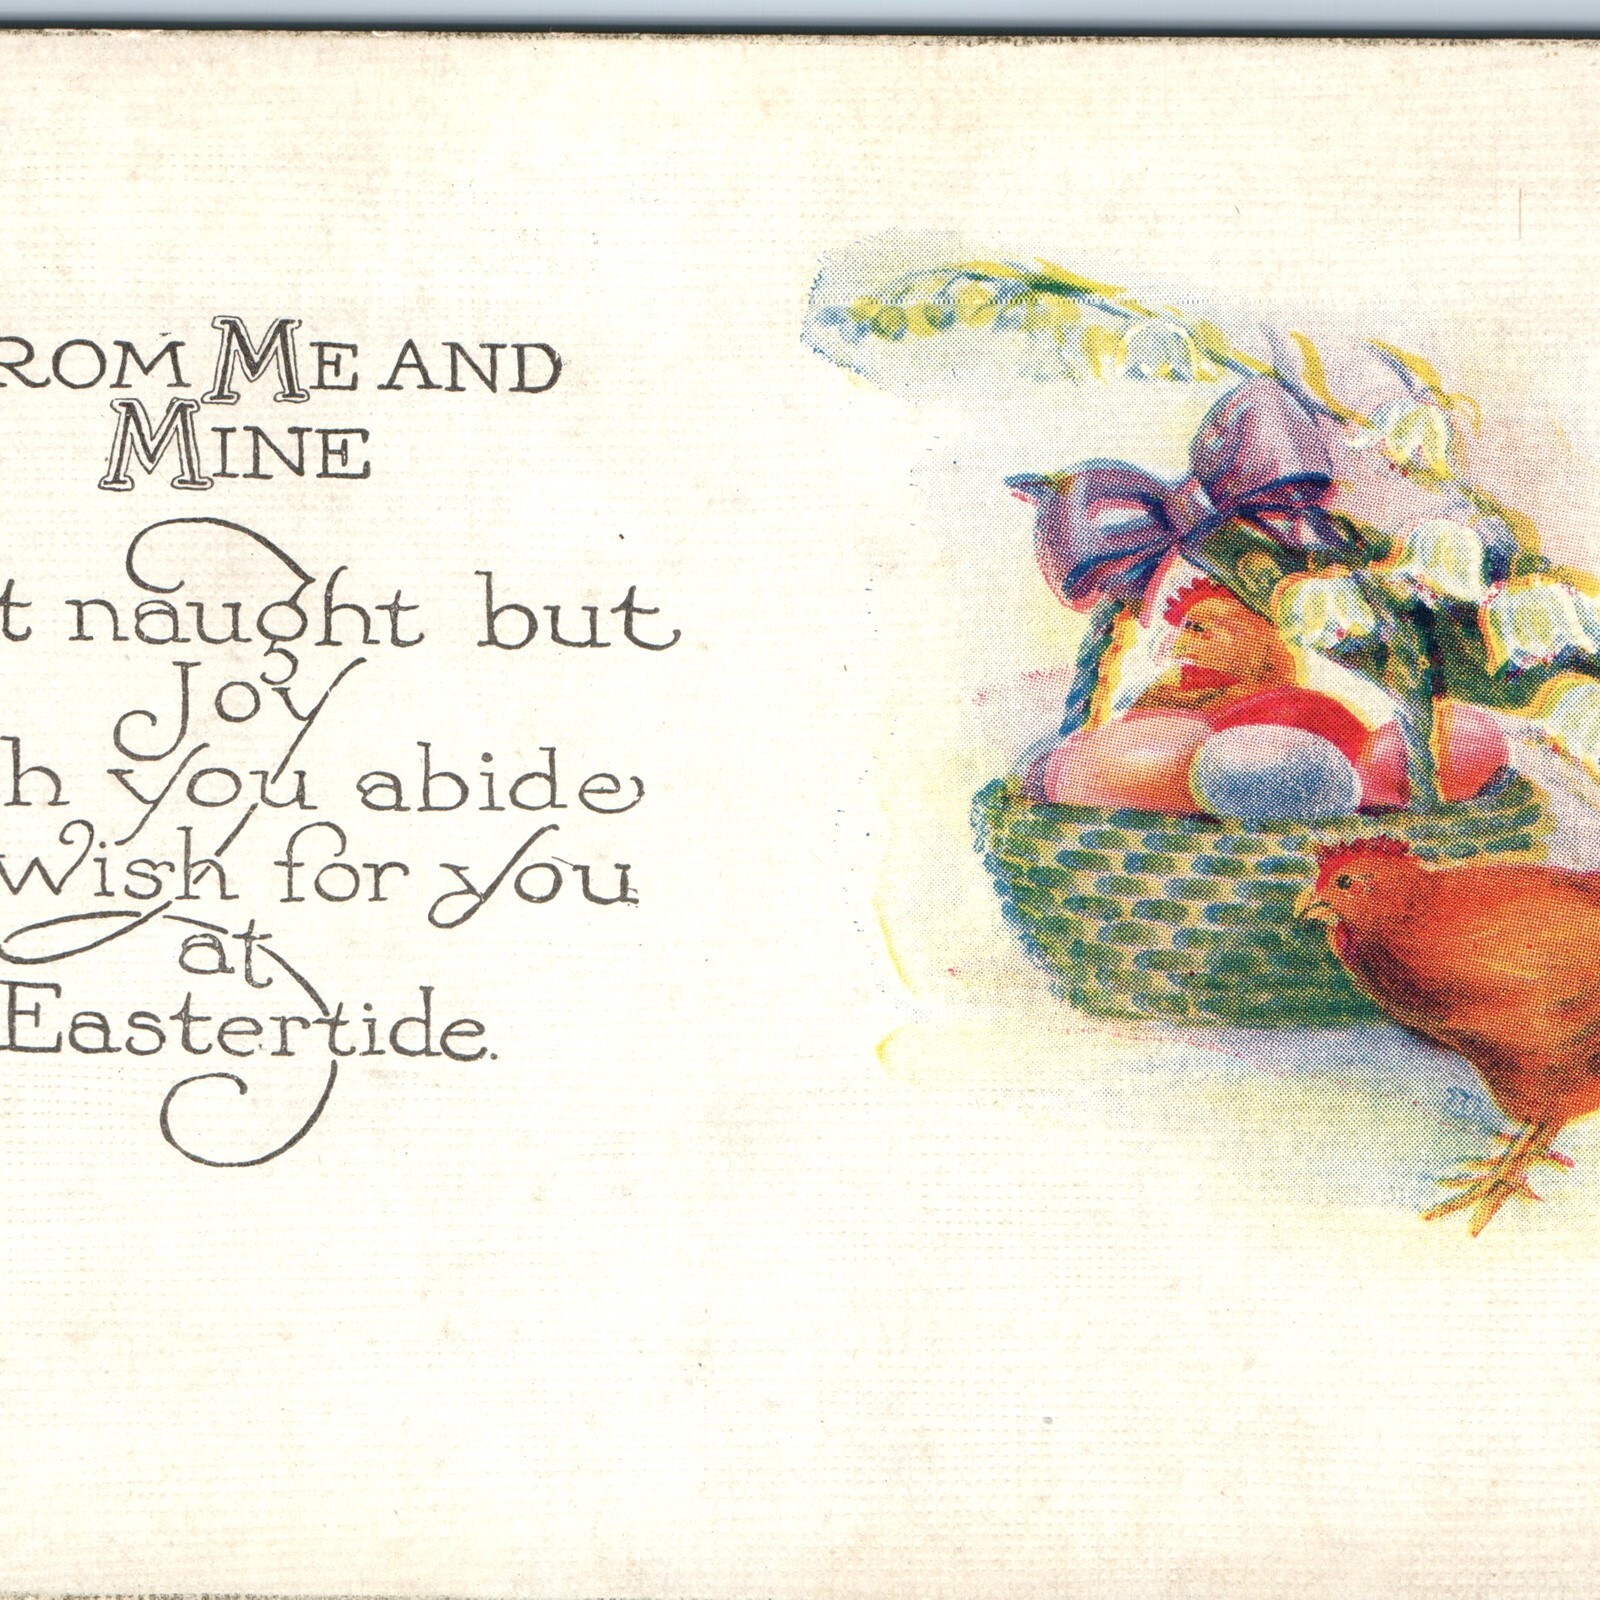 ROM ME AND
MINE
t naught but
Joy
h you abide
Wish for you
at
Eastertide.